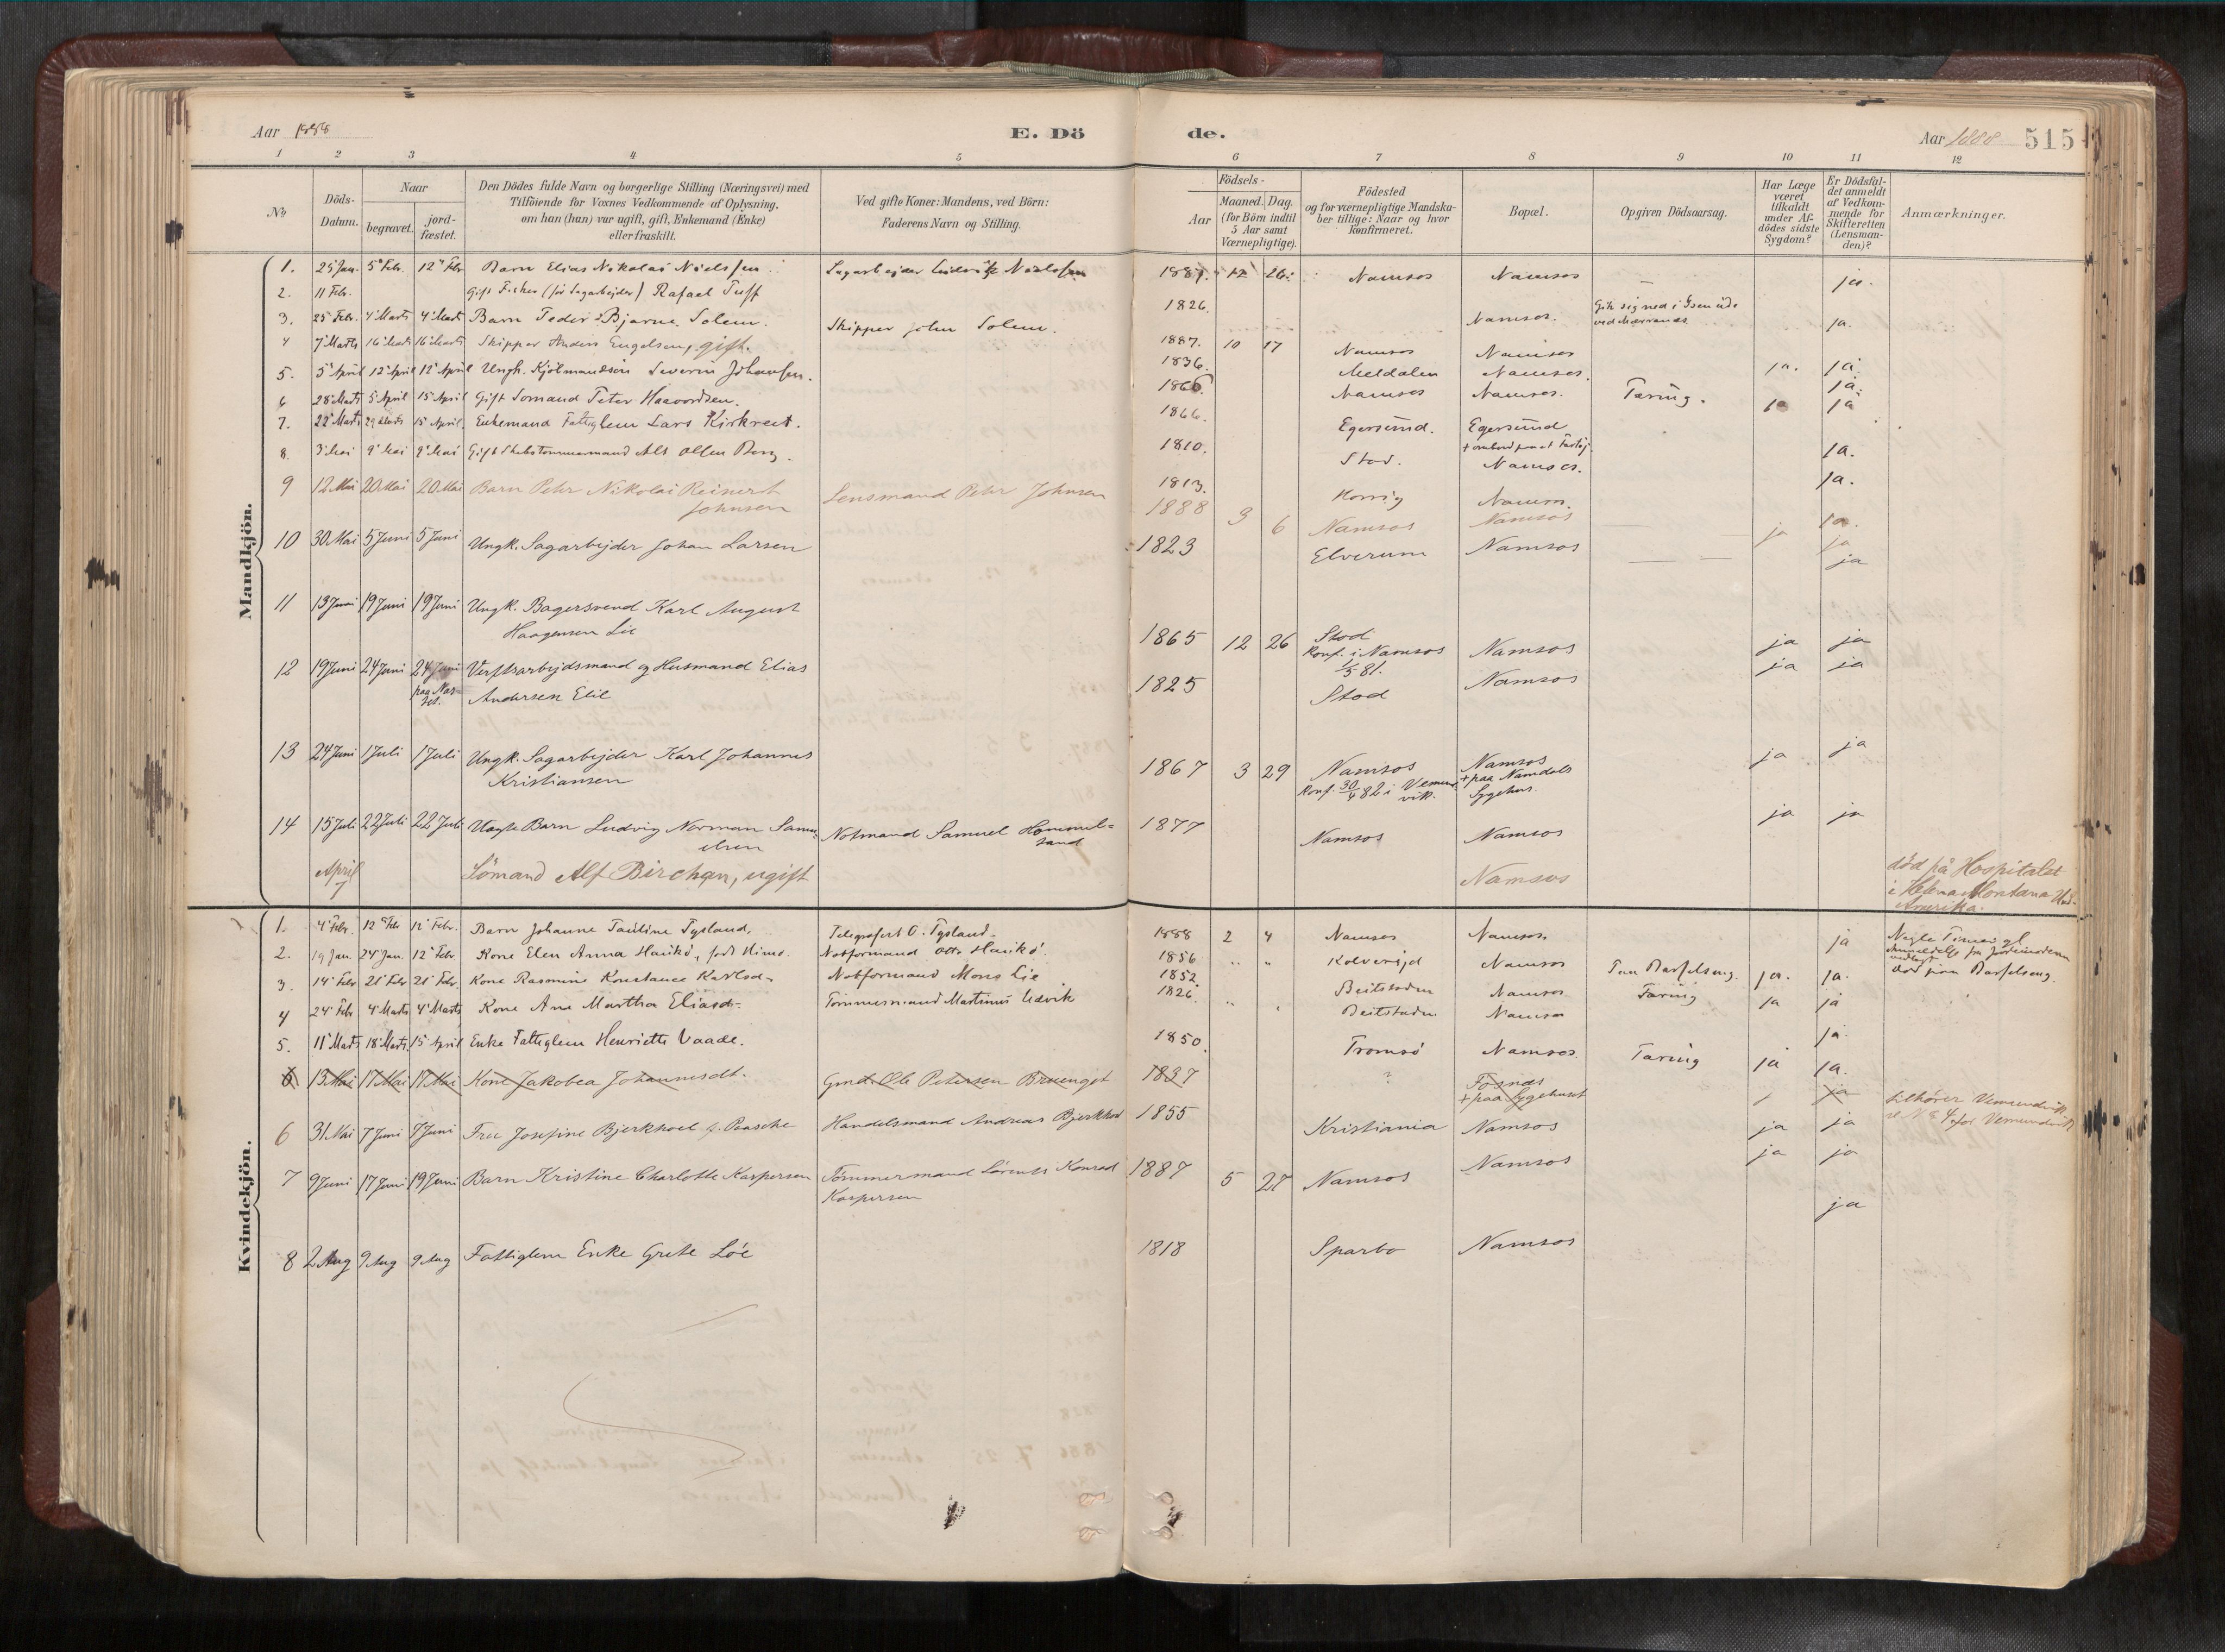 Aar 1888
E. Döde.
Aar 1888 515
1 2 3 4 5 6 7 8 9 10 11 12
No
Döds-Datum.
Naar
begravet.
jord-fæstet.
Den Dödes fulde Navn og borgerlige Stilling (Næringsvei) med
Tilföiende for Voxnes Vedkommende af Oplysning,
om han (hun) var ugift, gift, Enkemand (Enke)
eller fraskilt.
Ved gifte Koner: Mandens, ved Börn:
Faderens Navn og Stilling.
Födsels-
Aar
Maaned. Dag.
(for Börn indtil
5 Aar samt
Værnepligtige).
Födested
og for værnepligtige Mandska-
ber tillige: Naar og hvor
Konfirmeret.
Bopæl.
Opgiven Dödsaarsag.
Har Læge
været
tilkaldt
under Af-
dödes sidste
Sygdom?
Er Dödsfal-
det anmeldt
af Vedkom-
mende for
Skifteretten
(Lensman-
den)?
Anmærkninger.
Mandkjön.
1. 25 Jan. 5 Febr. 12 Febr. Barn Elias Nikolai Nielssen. Sagarbejder Ludvik Nielssen 1887. 12 26. Namsos Namsos ja.
2. 11 Febr. Gift Fisker (før Sagarbejder) Rafael Tuff 1826. Namsos. Gik sig ned i Isen ude ved Mærranes. ja.
3. 25 Febr. 4 Marts 4 Marts Barn Peder Bjarne Solem. Skipper John Solem. 1887. 10 17 Namsos Namsos
4 7 Marts 16 Marts 16 Marts Skipper Anders Engelsen, gift. 1836. Meldalen Namsos. ja. ja.
5. 5 April 12 April 12 April Ungk. Severin Johansen. 1866. Namsos Namsos. Tæring. ja.
6 28 Marts 5 April 15 April Gift Sømand Peter Haavordsen. 1866. Egersund. Egersund + ombord paa et Fartøj. ja ja
7. 22 Marts 29 Marts 15 April. Enkemand Fattiglem Lars Kirkreit. 1810. Stod. Namsos. ja.
8. 3 Mai 9 Mai 9 Mai Gift Skibstømmermand Alt Olsen Berg. 1813. Namsos. ja.
9 12 Mai 20 Mai 20 Mai Barn Petr Nikolai Reinert Johnsen Lensmand Petr Johnsen 1888 3 6 Namsos Namsos ja ja
10 30 Mai 5 Juni 5 Juni Ungk. Sagarbejder Johan Larsen 1823 Elverum Namsos ja
11 13 Juni 19 Juni 19 Juni Ungk. Bagersvend Karl August
Haagensen Lie 1865 12 26 Stod Konf. i Namsos 1/5 81. Namsos ja ja
12 19 Juni 24 Juni 24 Juni Verftsarbejdsmand og Husmand Elias
Andersen Elil 1825 Stod Namsos ja ja
13 24 Juni 1 Juli 1 Juli Ungk. Sagarbejder Karl Johannes
Kristiansen 1867 3 29 Namsos Konf. 30/4 82 i Vemundvik. Namsos + paa Namdals Sygehus. ja ja
14 15 Juli 22 Juli 22 Juli Uægte Barn Ludvig Norman Samuelsen Notmand Samuel Hommelsand 1877 Namsos Namsos ja ja
April Sømand Alf Birchan, ugift Namsos død på Hospitalet
i Helena Montana
Amerika.
Kvindekjön.
1. 4 Febr. 12 Febr 12 Febr. Barn Johanne Pauline Tysland. Telegrafist O. Tysland. 1888 2 4 Namsos Namsos. ja
2. 19 Jan. 24 Jan. 12 Febr. Kone Elen Anna Hanikø, født Himo. Notformand Otto Hanikø. 1856. Kolvereid Namsos ja. ja. død paa Barselseng.
3. 14 Febr 21 Febr 21 Febr. Kone Rasmine Konstance Karlsd. Notformand Mons Lie 1852. Beitstaden Namsos Tæring ja ja
4 24 Febr 4 Marts 4 Marts Kone Ane Martha Eliasd. Tømmermand Martinus Udvik 1826. Beitstaden Namsos ja.
5. 11 Marts 18 Marts 15 April Enke Fattiglem Henriette Vaade. 1850. Tromsø Namsos. Tæring ja ja.
6 13 Mai 17 Mai 17 Mai Kone Jakobea Johannesdt. Gmd. Ole Petersen Bruenget 1837 ? Fosnes + paa Sygehuset ja tilhører Vemundvik
6 31 Mai 7 Juni 7 Juni Frue Josefine Bjerkhoel f. Paasche Handelsmand Andreas Bjerkhoel 1855 Kristiania Namsos ja ja
7 9 Juni 17 Juni 19 Juni Barn Kristine Charlotte Kaspersen Tømmermand Lorents Konrad
Kaspersen 1887 5 27 Namsos Namsos ja ja
8 2 Aug 9 Aug 9 Aug Fattiglem Enke Grete Løe 1818 Sparbo Namsos ja